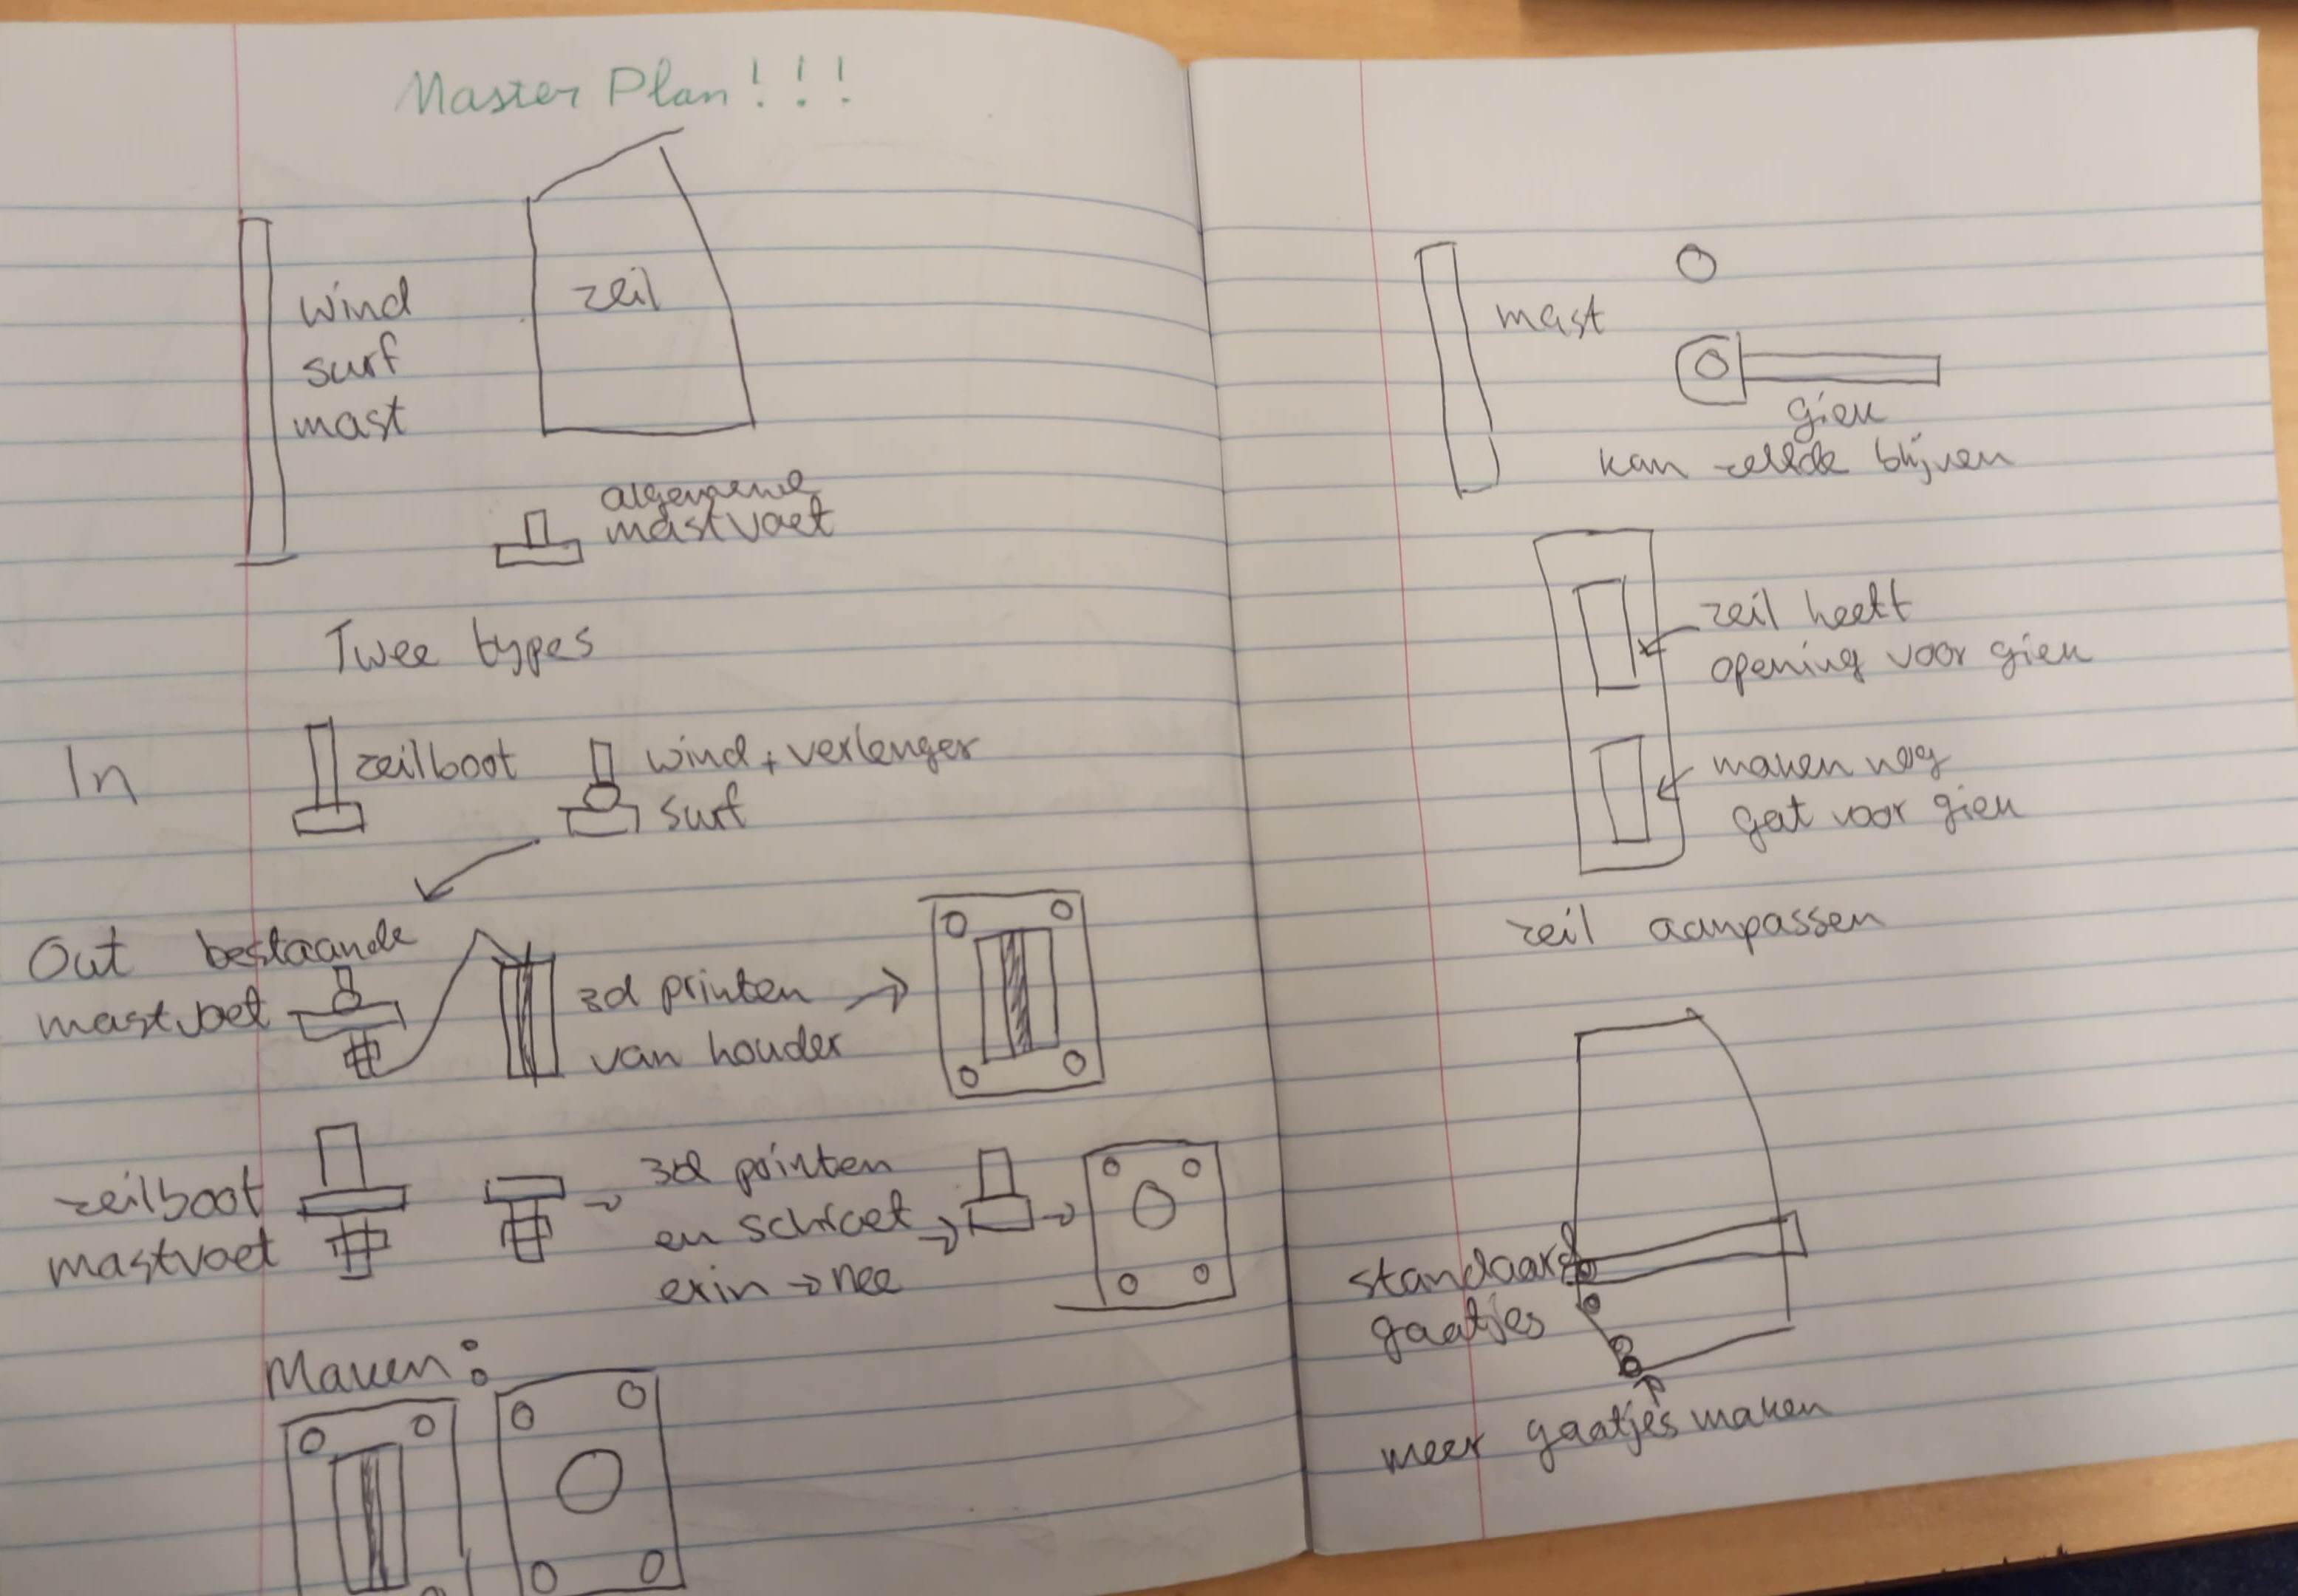 Master Plan!!!
wind
surf
mast
zeil
algemene
mastvoet
Twee types
In
zeilboot
wind + verlenger
surf
Out
bestaande
mastvoet
3d printen
van houder
zeilboot
mastvoet
3d printen
en schroet
erin → nee
Maken:
mast
giek
kan zelfde blijven
zeil heeft
opening voor giek
maken nog
gat voor giek
zeil aanpassen
standaard
gaatjes
meer gaatjes maken